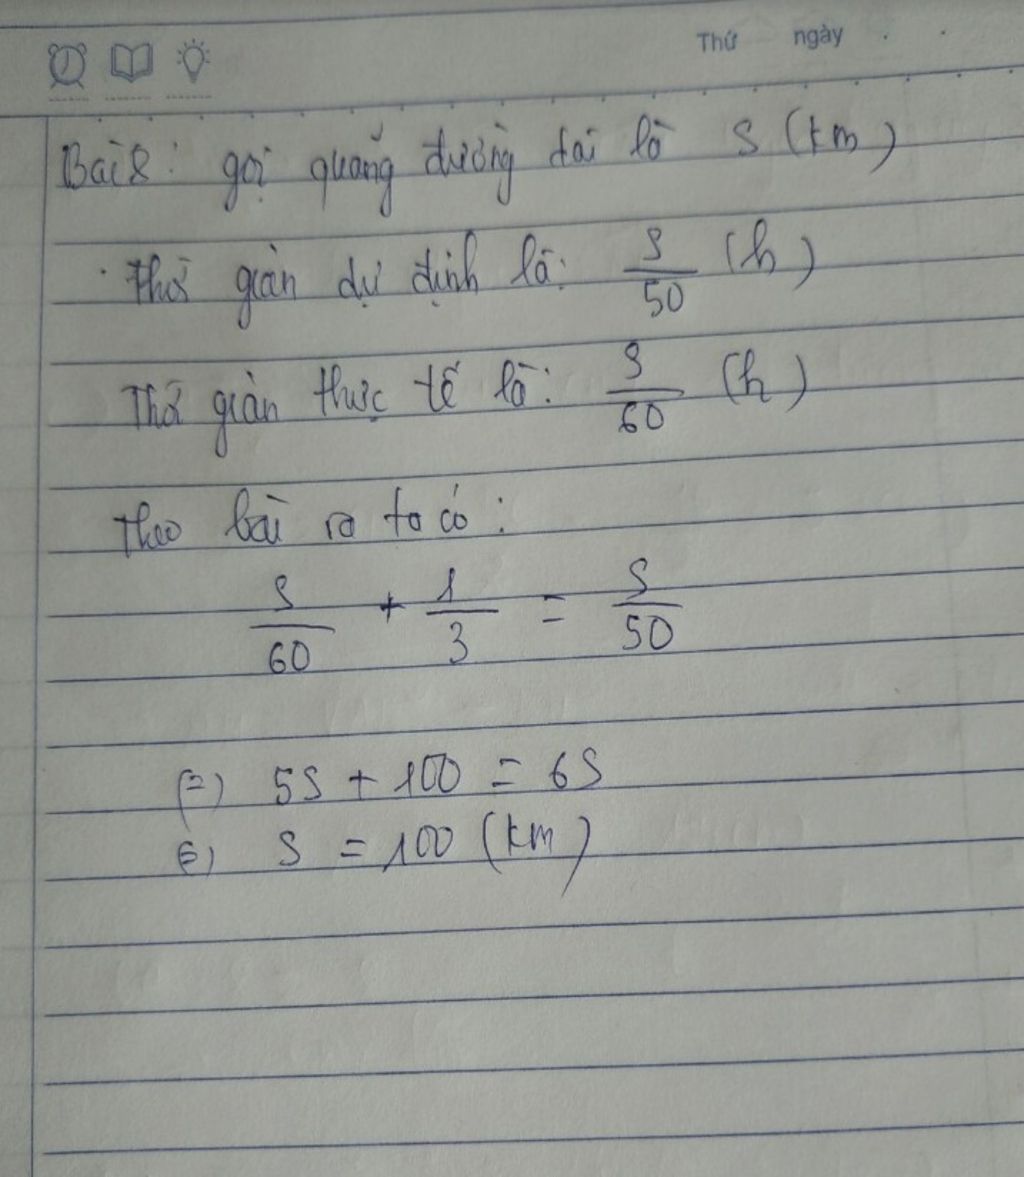 Thứ ngày
Bài 8: gọi quãng đường dài là S (km)
Thời gian dự định là: S/50 (h)
Thời gian thực tế là: S/60 (h)
Theo bài ra ta có:
S/60 + 1/3 = S/50
(=) 5S + 100 = 6S
(=) S = 100 (km)